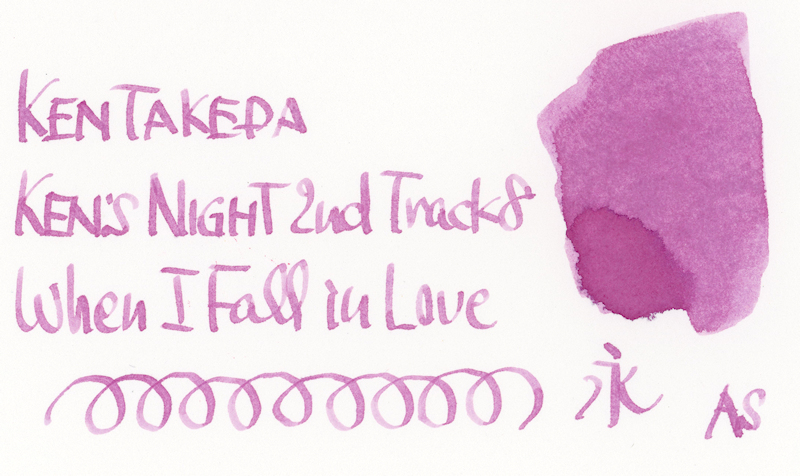 KEN TAKEDA
KEN'S NIGHT 2nd Track8
When I Fall in Love
永
AS